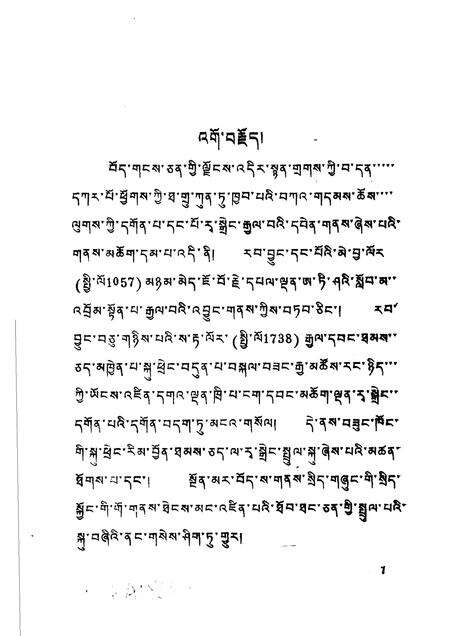 འགོ་བརྗོད།
བོད་གངས་ཅན་གྱི་ལྗོངས་འདིར་སྙན་གྲགས་ཀྱི་བ་དན་་་་་
དཀར་པོ་ཕྱོགས་ཀྱི་ཐ་གྲུ་ཀུན་ཏུ་ཁྱབ་པའི་བཀའ་གདམས་ཆོས་་་་
ལུགས་ཀྱི་དགོན་པ་དང་པོ་རྭ་སྒྲེང་རྒྱལ་བའི་དབེན་གནས་ཞེས་པའི་
གནས་མཆོག་དམ་པ་འདི་ནི། རབ་བྱུང་དང་པོའི་མེ་བྱ་ལོར
(སྤྱི་ལོ1057) མཉམ་མེད་ཇོ་བོ་རྗེ་དཔལ་ལྡན་ཨ་ཏི་ཤའི་སློབ་མ་་
འབྲོམ་སྟོན་པ་རྒྱལ་བའི་འབྱུང་གནས་ཀྱིས་བཏབ་ཅིང་། རབ་
བྱུང་བཅུ་གཉིས་པའི་ས་རྟ་ལོར་ (སྤྱི་ལོ1738) རྒྱལ་དབང་ཐམས་་
ཅད་མཁྱེན་པ་སྐུ་ཕྲེང་བདུན་པ་བསྐལ་བཟང་རྒྱ་མཚོས་རང་ཉིད་་་
ཀྱི་ཡོངས་འཛིན་དགའ་ལྡན་ཁྲི་པ་ངག་དབང་མཆོག་ལྡན་རྭ་སྒྲེང་་
དགོན་པའི་དགོན་བདག་ཏུ་མངའ་གསོལ། དེ་ནས་བཟུང་ཁོང་
གི་སྐུ་ཕྲེང་རིམ་བྱོན་ཐམས་ཅད་ལ་རྭ་སྒྲེང་སྤྲུལ་སྐུ་ཞེས་པའི་མཚན་
ཐོགས་པ་དང་། སྔོན་མར་བོད་ས་གནས་སྲིད་གཞུང་གི་སྲིད་
སྐྱོང་གི་གོ་གནས་ཐེངས་མང་འཛིན་པའི་ཐོབ་ཐང་ཅན་གྱི་སྤྲུལ་པའི་
སྐུ་བཞིའི་ནང་གསེས་ཤིག་ཏུ་གྱུར།
1